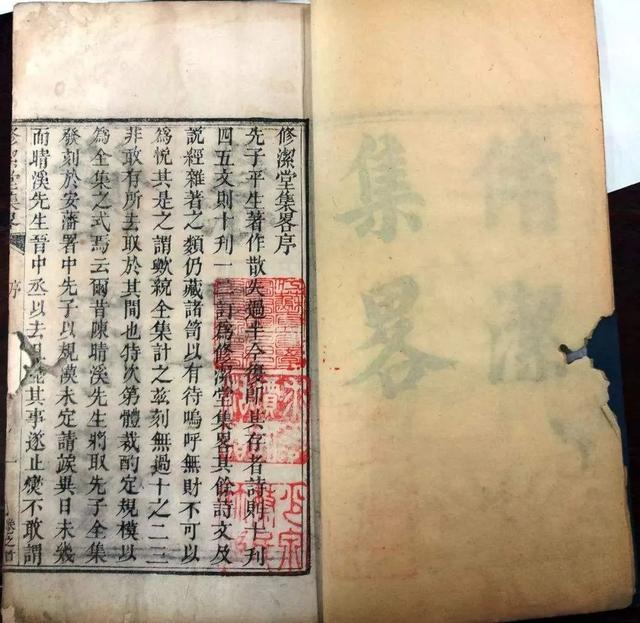 修潔
集畧
修潔堂集畧序
先子平生著作散失過半今復卽其存者詩則十刊
四五文則十刊一二訂爲修潔堂集畧其餘詩文及
說經雜著之類仍藏諸笥以有待嗚呼無財不可以
爲悅其是之謂歟統全集計之茲刻無過十之二三
非敢有所去取於其間也特次第體裁酌定規模以
為全集之式焉云爾昔陳晴溪先生將取先子全集
發刻於安藩署中先子以規模未定請俟異日未幾
而晴溪先生晉中丞以去其事遂止燮不敢謂
修潔堂集畧
序
一
卷之首